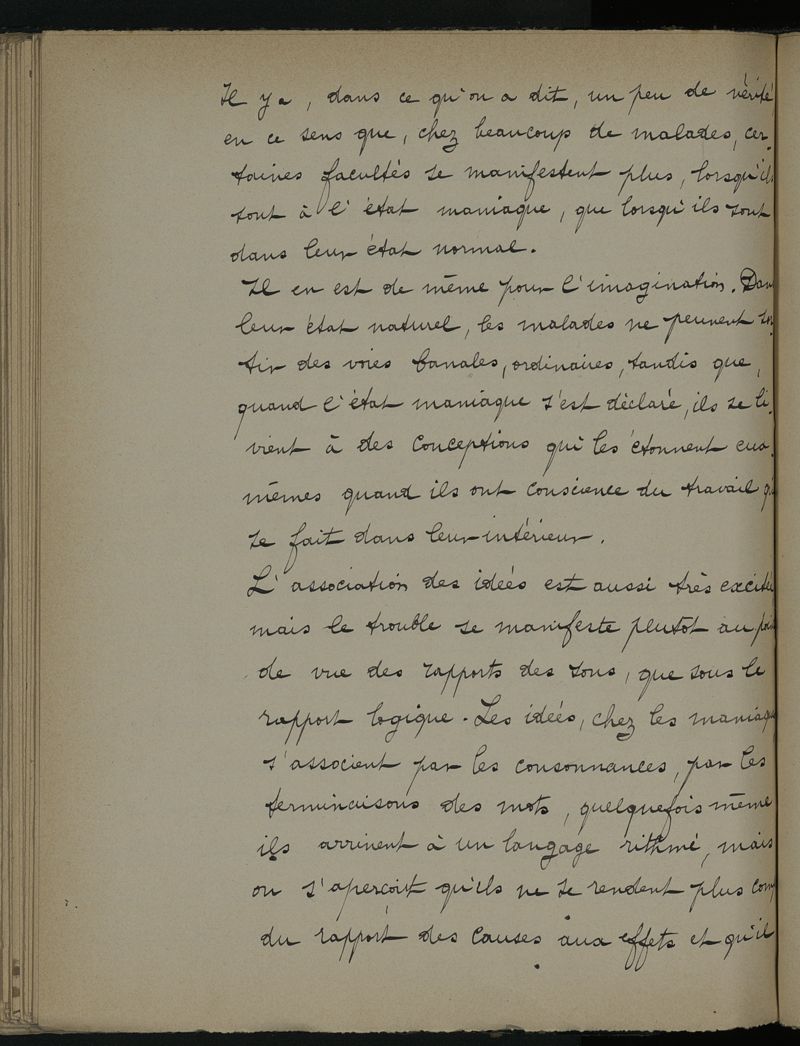 Il y a, dans ce qu'on a dit, un peu de vérité
en ce sens que, chez beaucoup de malades, cer-
taines facultés se manifestent plus, lorsqu'ils
sont à l'état maniaque, que lorsqu'ils sont
dans leur état normal.
Il en est de même pour l'imagination. Dans
leur état naturel, les malades ne peuvent sor-
tir des voies banales, ordinaires, tandis que,
quand l'état maniaque s'est déclaré, ils se li-
vrent à des conceptions qui les étonnent eux-
mêmes quand ils ont conscience du travail qui
se fait dans leur intérieur.
L'association des idées est aussi très excitée
mais le trouble se manifeste plutôt au point
de vue des rapports des sons, que sous le
rapport logique. Les idées, chez les maniaques
s'associent par les consonnances, par les
terminaisons des mots, quelquefois même
ils arrivent à un langage rithmé, mais
on s'aperçoit qu'ils ne se rendent plus comp
du rapport des causes aux effets et qu'il